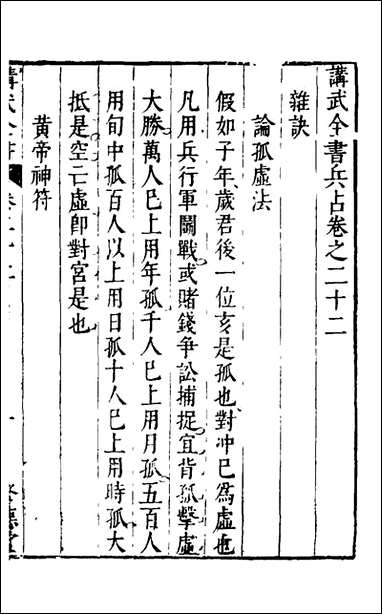 講武全書兵占卷之二十二
雜訣
論孤虛法
假如子年歲君後一位亥是孤也對冲巳爲虛也
凡用兵行軍鬭戰或賭錢爭訟捕捉宜背孤擊虛
大勝萬人巳上用年孤千人巳上用月孤五百人
用旬中孤百人以上用日孤十人巳上用時孤大
抵是空亡虛卽對宮是也
黄帝神符